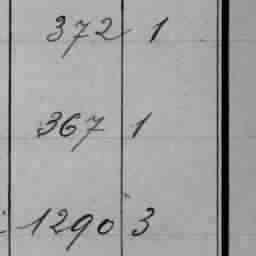 372 1
367 1
1290 3